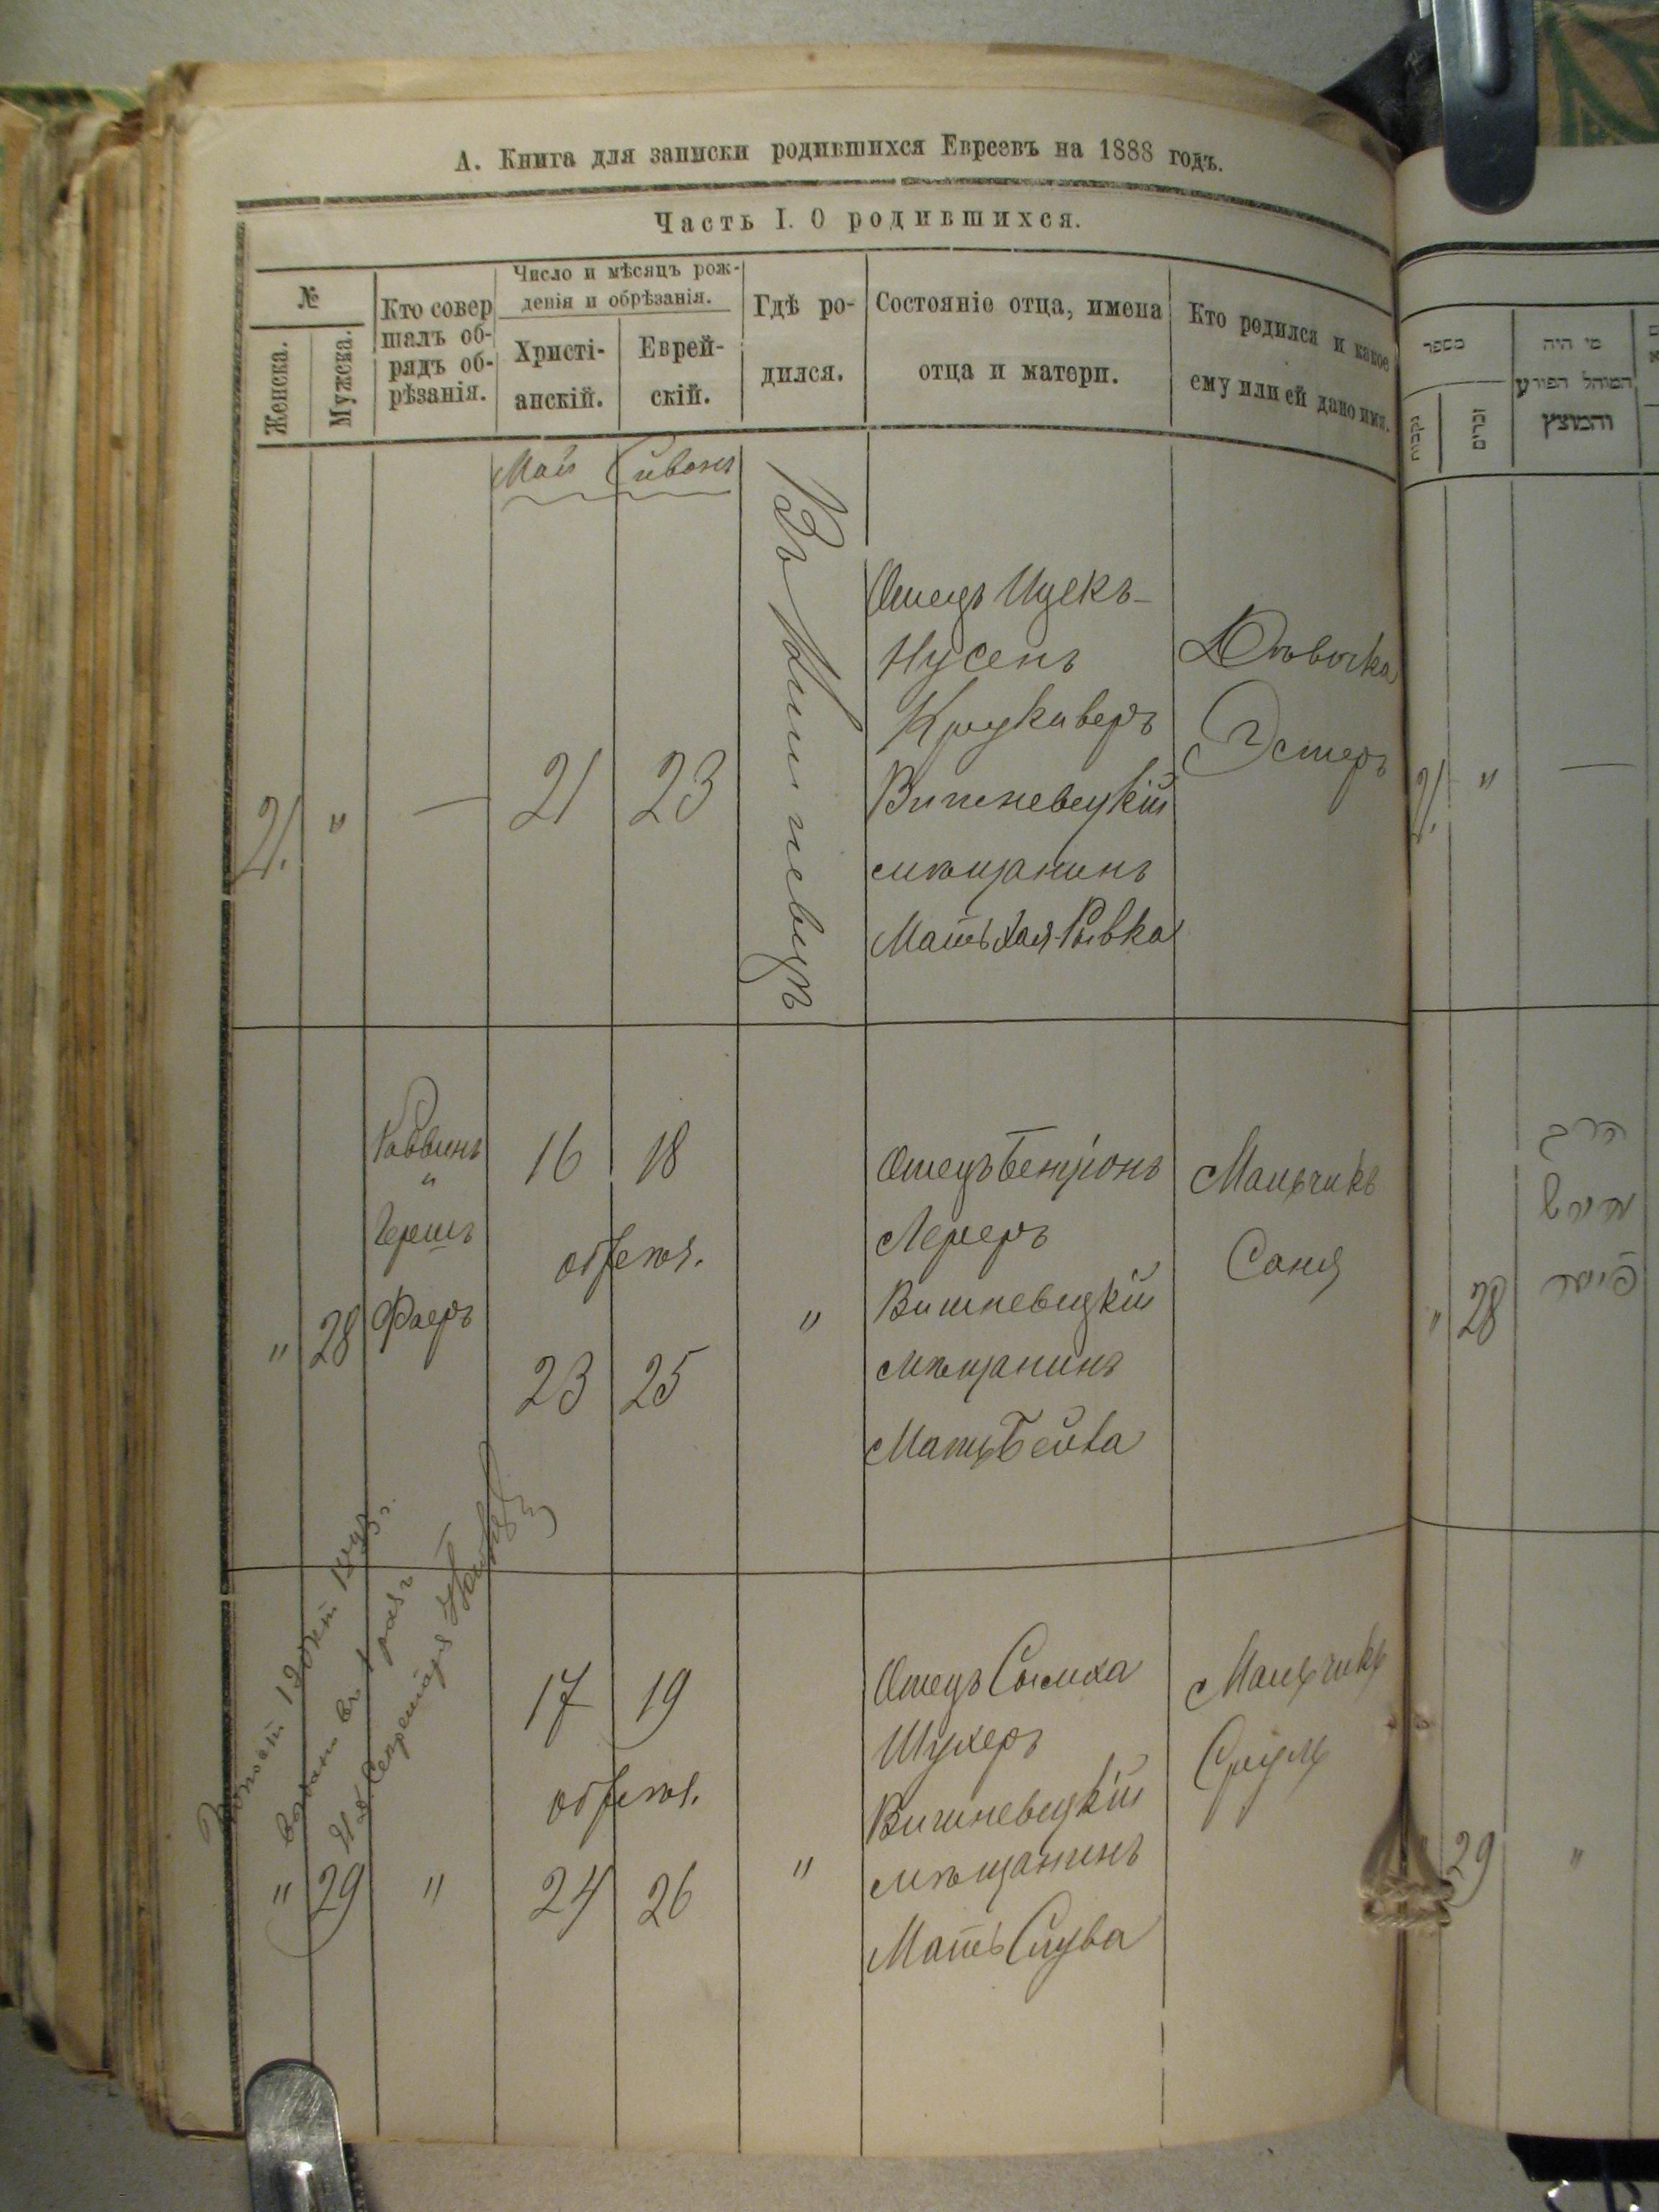 А. Книга для записки родившихся Евреевъ на 1888 годъ.
Часть I. О родившихся.
№
Женска.
Мужска.
Кто совер
шалъ об-
рядъ об-
рѣзанія.
Число и мѣсяцъ рож-
денія и обрѣзанія.
Христі-
анскій.
Еврей-
скій.
Гдѣ ро-
дился.
Состояніе отца, имена
отца и матери.
Кто родился и какое
ему или ей дано имя.
Май Сивонъ
21. " — 21 23
Въ Вишневцѣ
Отецъ Ицекъ-
Нусенъ
Крукиверъ
Вишневецкій
мѣщанинъ
Мать Хая-Ривка
Дѣвочка
Эстеръ
" 28
Раввинъ
"
Гершъ
Фаеръ
16 18
обрезая.
23 25
"
Отецъ Бенціонъ
Лереръ
Вишневецкій
мѣщанинъ
Мать Бейла
Мальчикъ
Саня
" 29 "
17 19
обрезая.
24 26
"
Отецъ Сымха
Шухеръ
Вишневецкій
мѣщанинъ
Мать Слува
Мальчикъ
Сруль
מספר
נקבות
זכרים
מי היה
המוהל הפורע
והמוצץ
21. " —
" 28
הרב
הירש
פייער
29 "